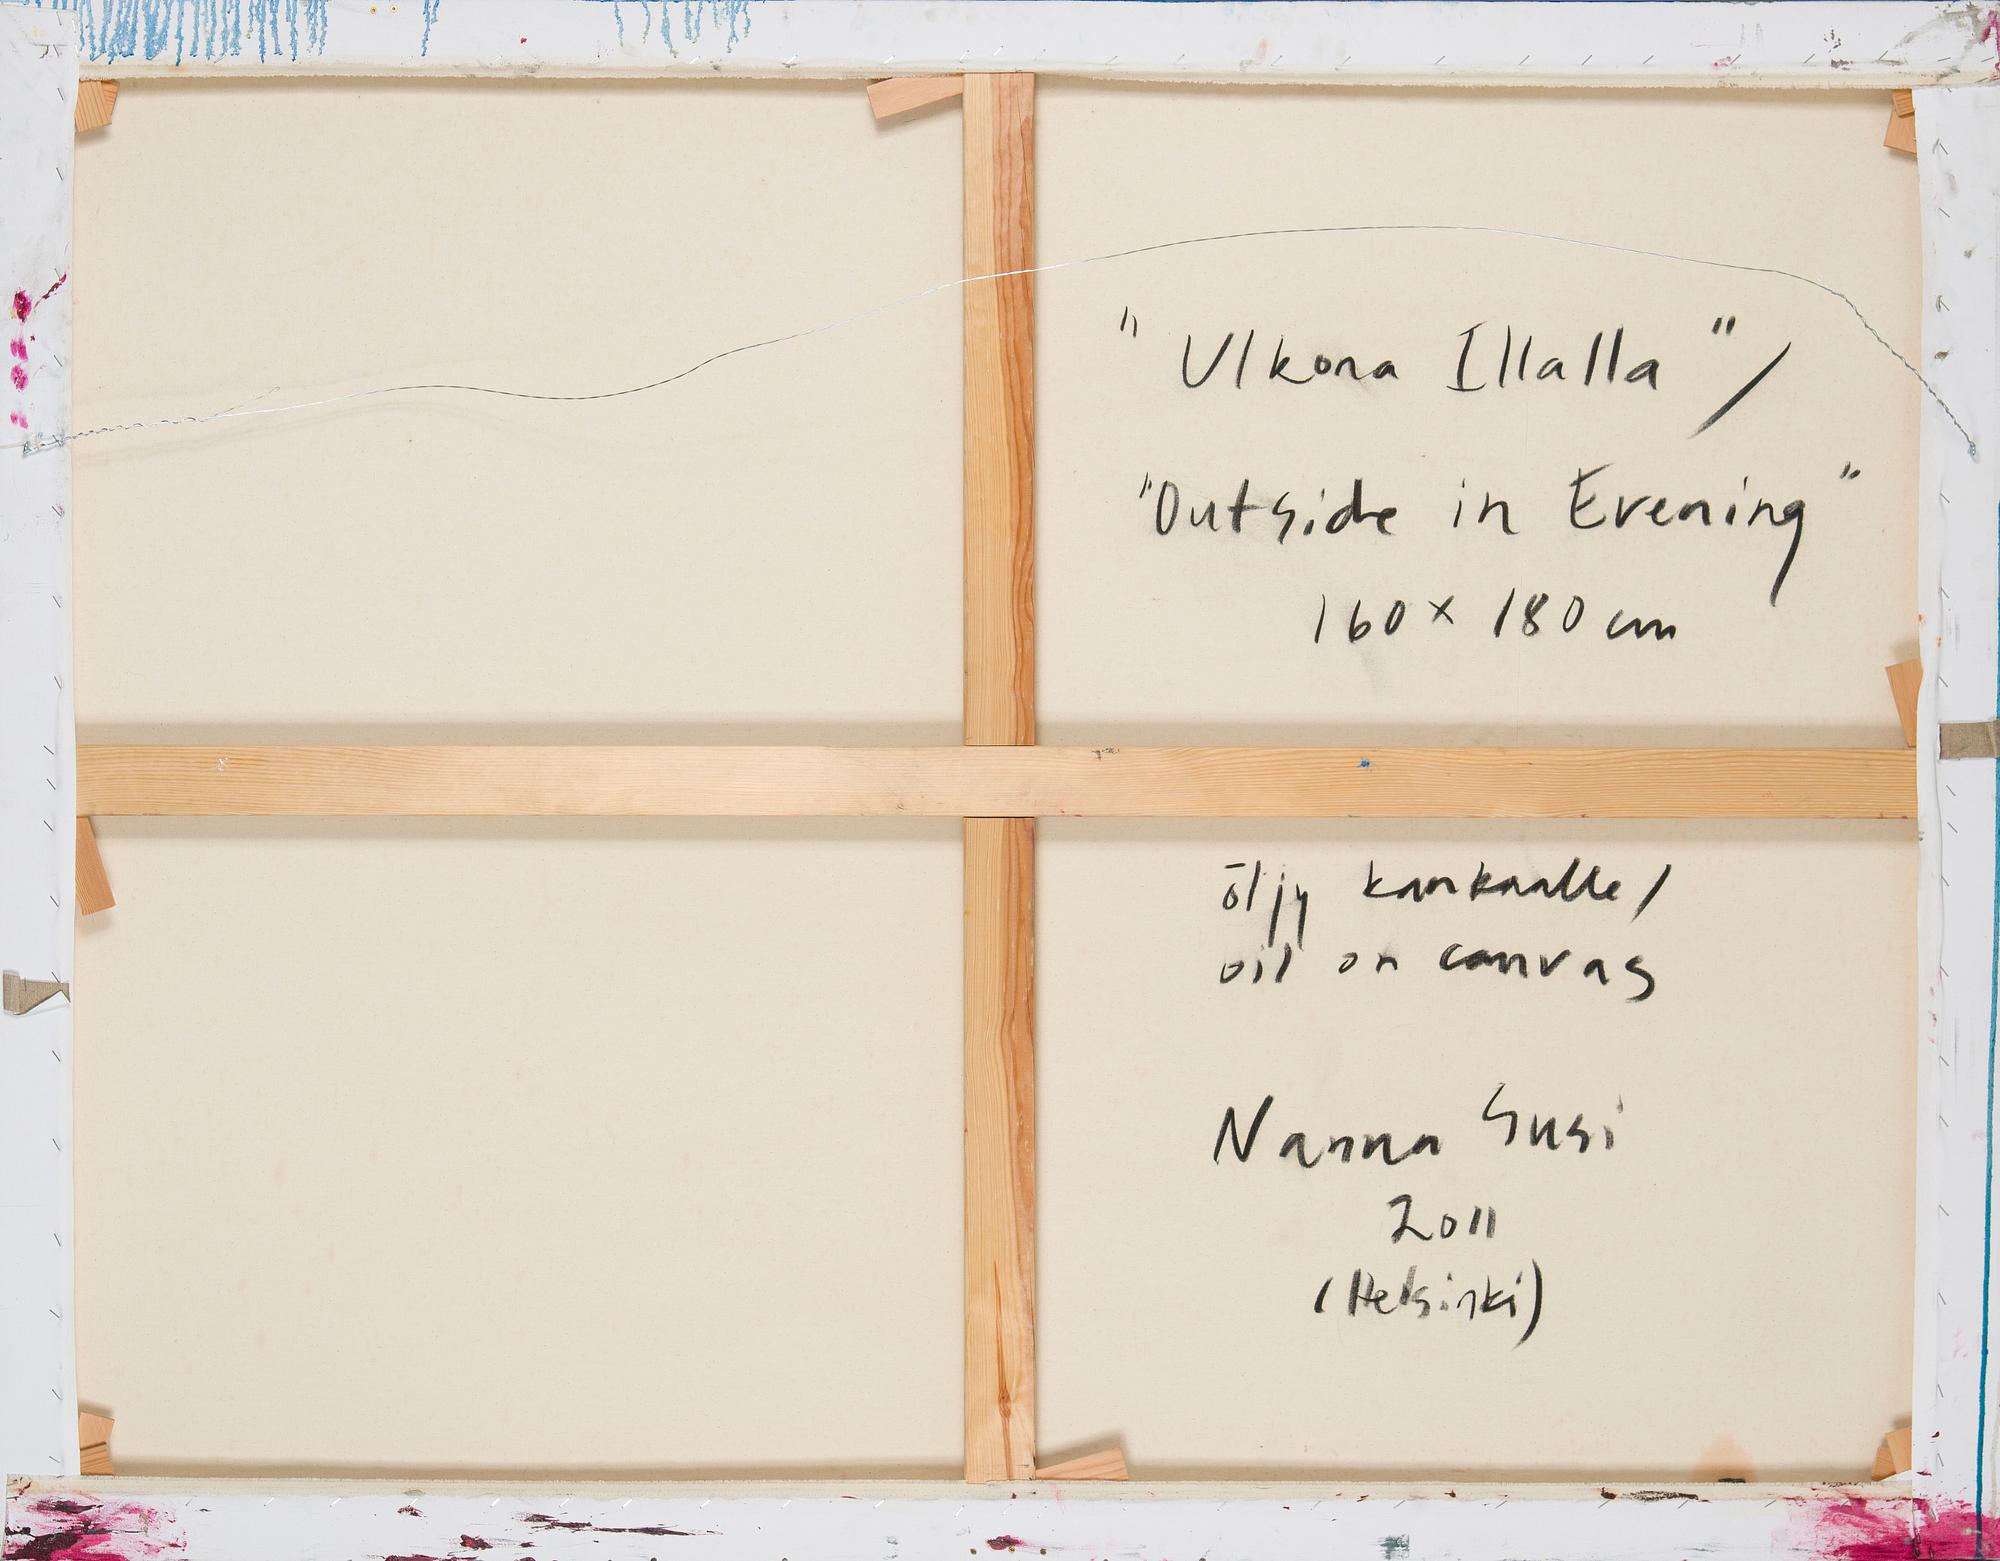 "Ulkona Illalla"/
"Outside in Evening"
160 x 180 cm
öljy kankaalle/
oil on canvas
Nanna Susi
2011
(Helsinki)